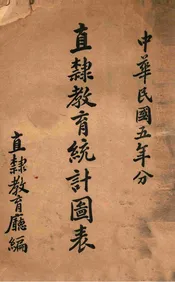 中華民國五年分
直隸教育統計圖表
直隸教育廳編